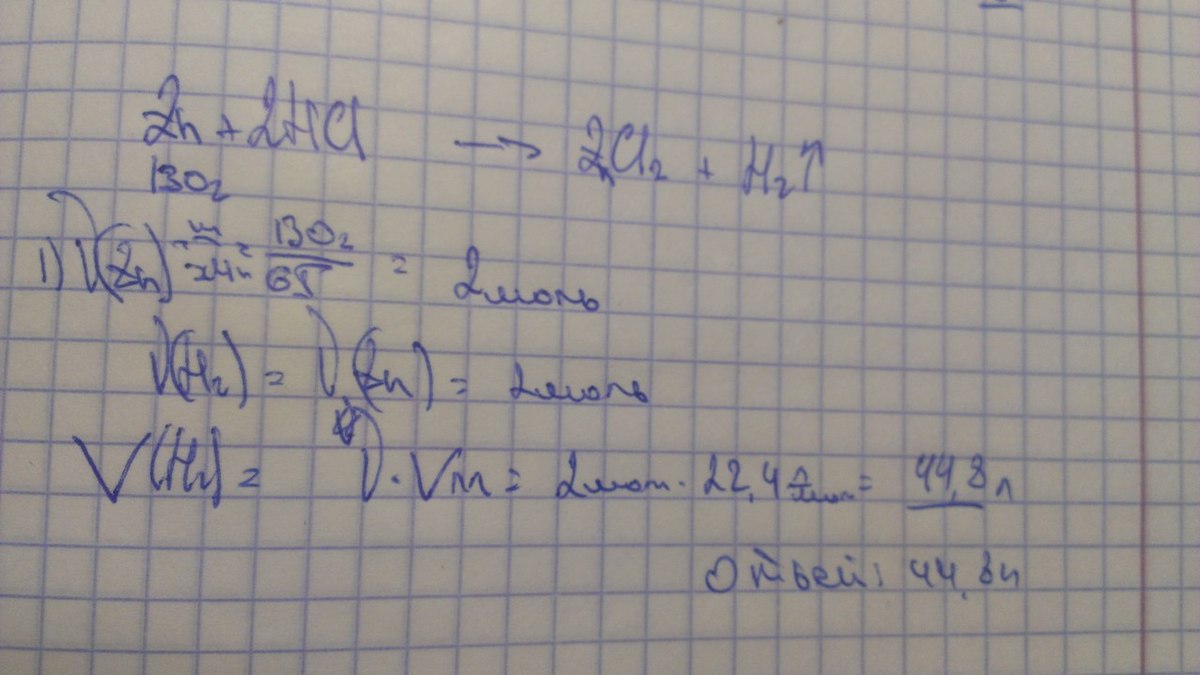 Zn + 2HCl → ZnCl₂ + H₂↑
130г
1) ν(Zn) = m/M = 130г/65 = 2моль
ν(H₂) = ν(Zn) = 2моль
V(H₂) = ν · Vm = 2мол · 22,4 л/мол = 44,8 л
Ответ: 44,8л